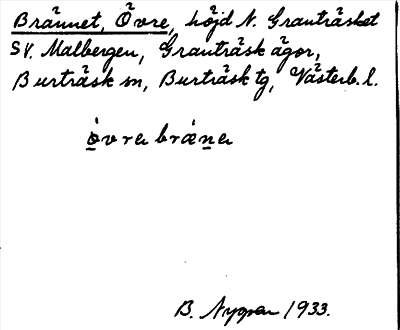 Brännet, Övre, höjd N. Granträsket
SV. Malbergen, Granträsk ägor,
Burträsk sn, Burträsk tg, Västerb. l.
òvra bræ̀na
B. Nygren 1933.